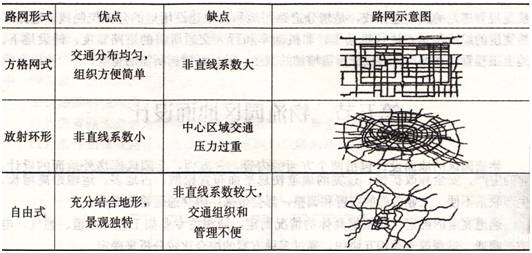 路网形式 优点 缺点 路网示意图
方格网式 交通分布均匀,
组织方便简单 非直线系数大
放射环形 非直线系数小 中心区域交通
压力过重
自由式 充分结合地形,
景观独特 非直线系数较大,
交通组织和
管理不便